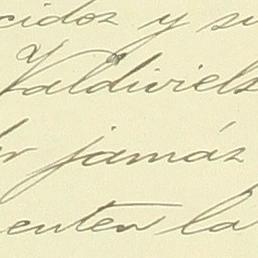 cidos y su
Valdiviels
or jamás
enten la